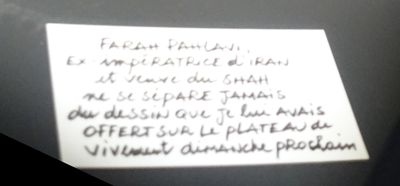 FARAH PAHLAVI,
EX-impÉRATRICE d'IRAN
et veuve du SHAH
ne se sÉPARE JAMAIS
du dessin que je lui AVAIS
OFFERT SUR LE PLATEAU de
vivement dimanche prochain